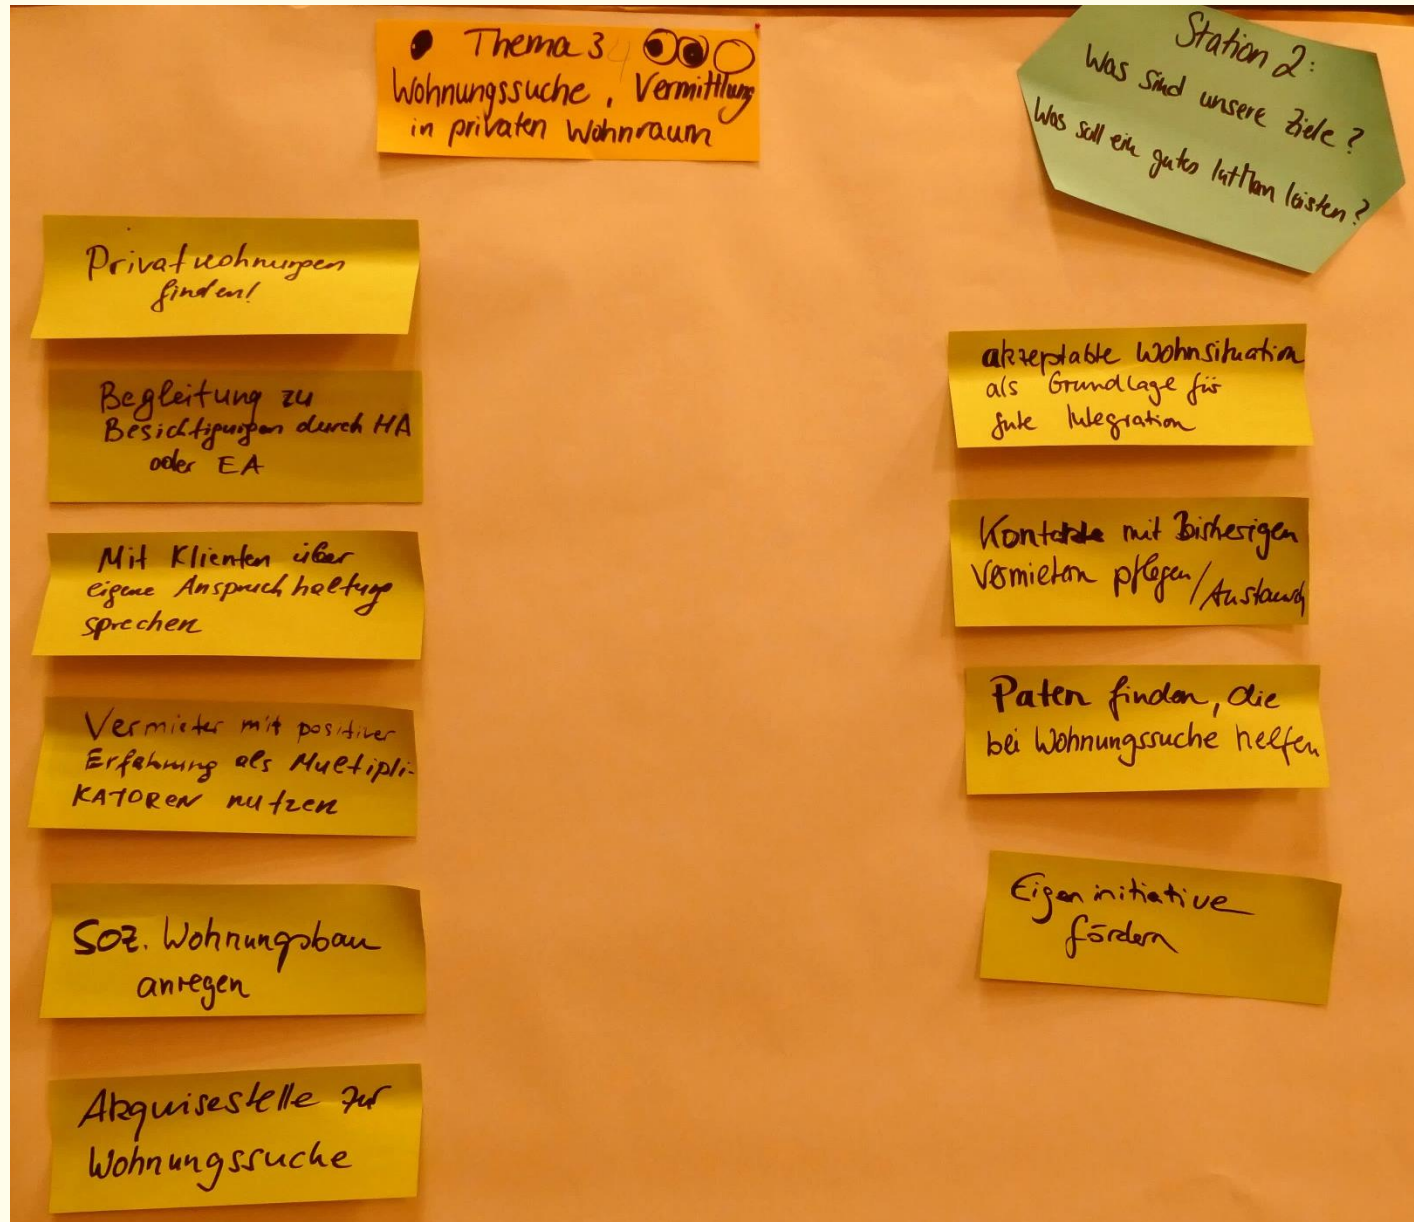 Thema 3
Wohnungssuche, Vermittlung
in privaten Wohnraum
Station 2:
Was sind unsere Ziele?
Was soll ein gutes IntMan leisten?
Privatwohnungen
finden!
Begleitung zu
Besichtigungen durch HA
oder EA
Mit Klienten über
eigene Anspruchhaltung
sprechen
Vermieter mit positiver
Erfahrung als Multipli-
KATOREN nutzen
Soz. Wohnungsbau
anregen
Akquisestelle zur
Wohnungssuche
akzeptable Wohnsituation
als Grundlage für
gute Integration
Kontakte mit Bisherigen
Vermietern pflegen/Austausch
Paten finden, die
bei Wohnungssuche helfen
Eigeninitiative
fördern